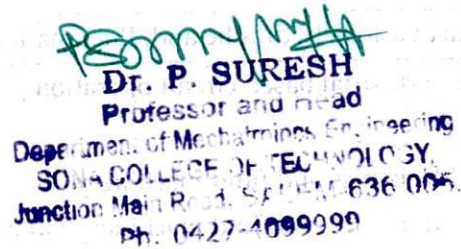 Dr. P. SURESH
Professor and Head
Department of Mechatronics Engineering
SONA COLLEGE OF TECHNOLOGY,
Junction Main Road, SALEM-636 005.
Ph. 0427-4099999